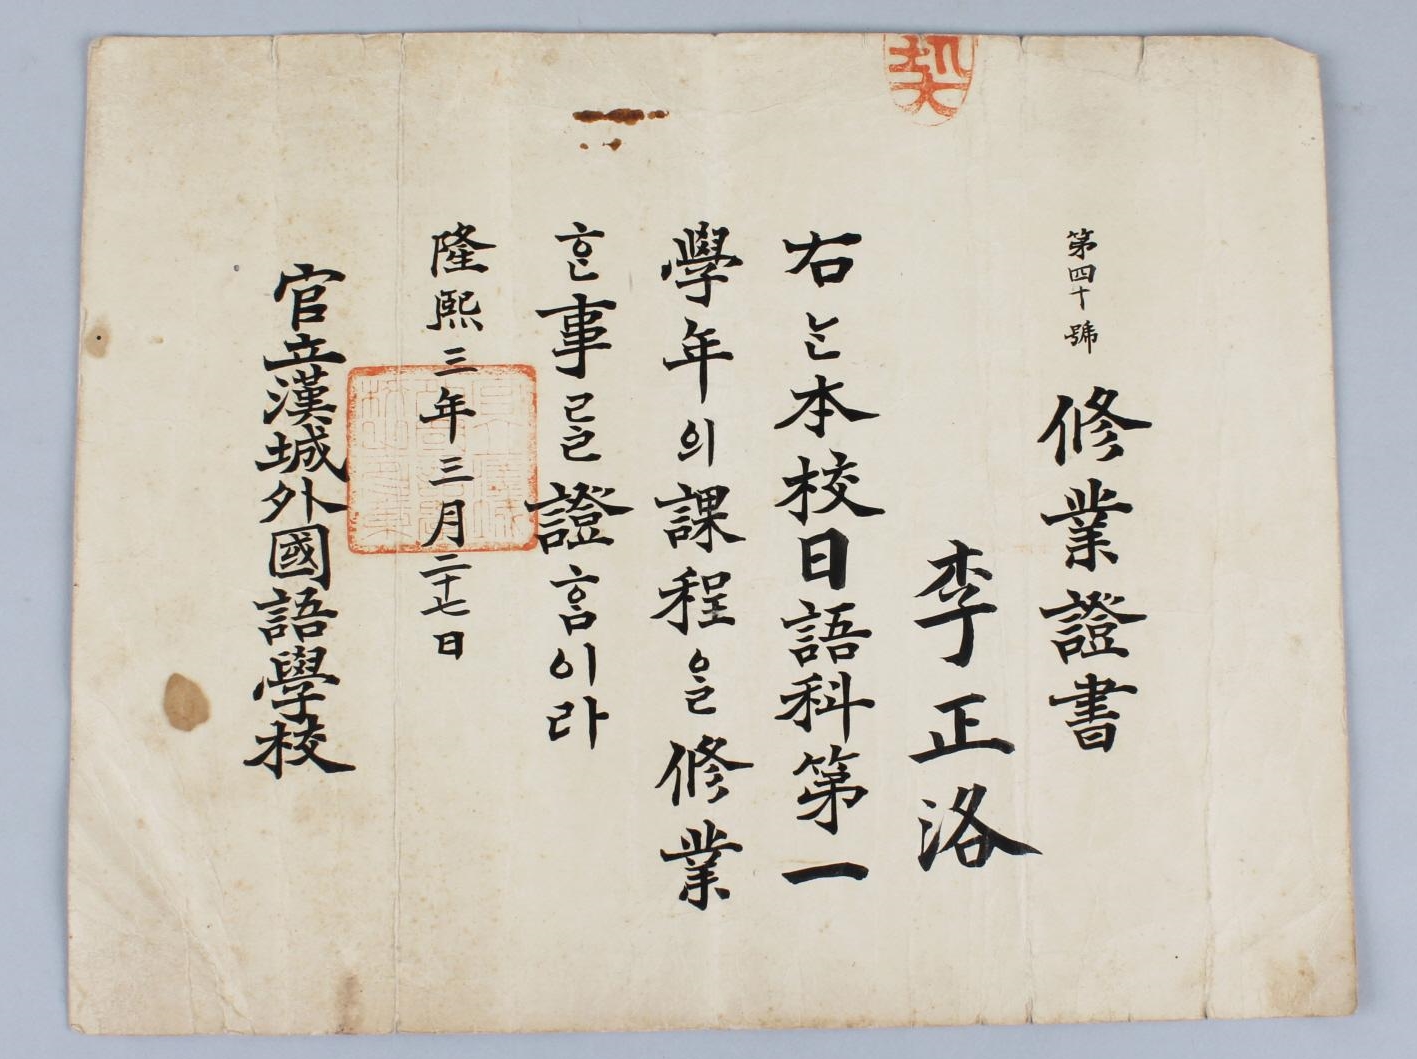 第四十號
修業證書
李正洛
右ᄂᆞᆫ本校日語科第一
學年의課程을修業
ᄒᆞᆫ事ᄅᆞᆯ證ᄒᆞᆷ이라
隆熙三年三月二十七日
官立漢城外國語學校
契